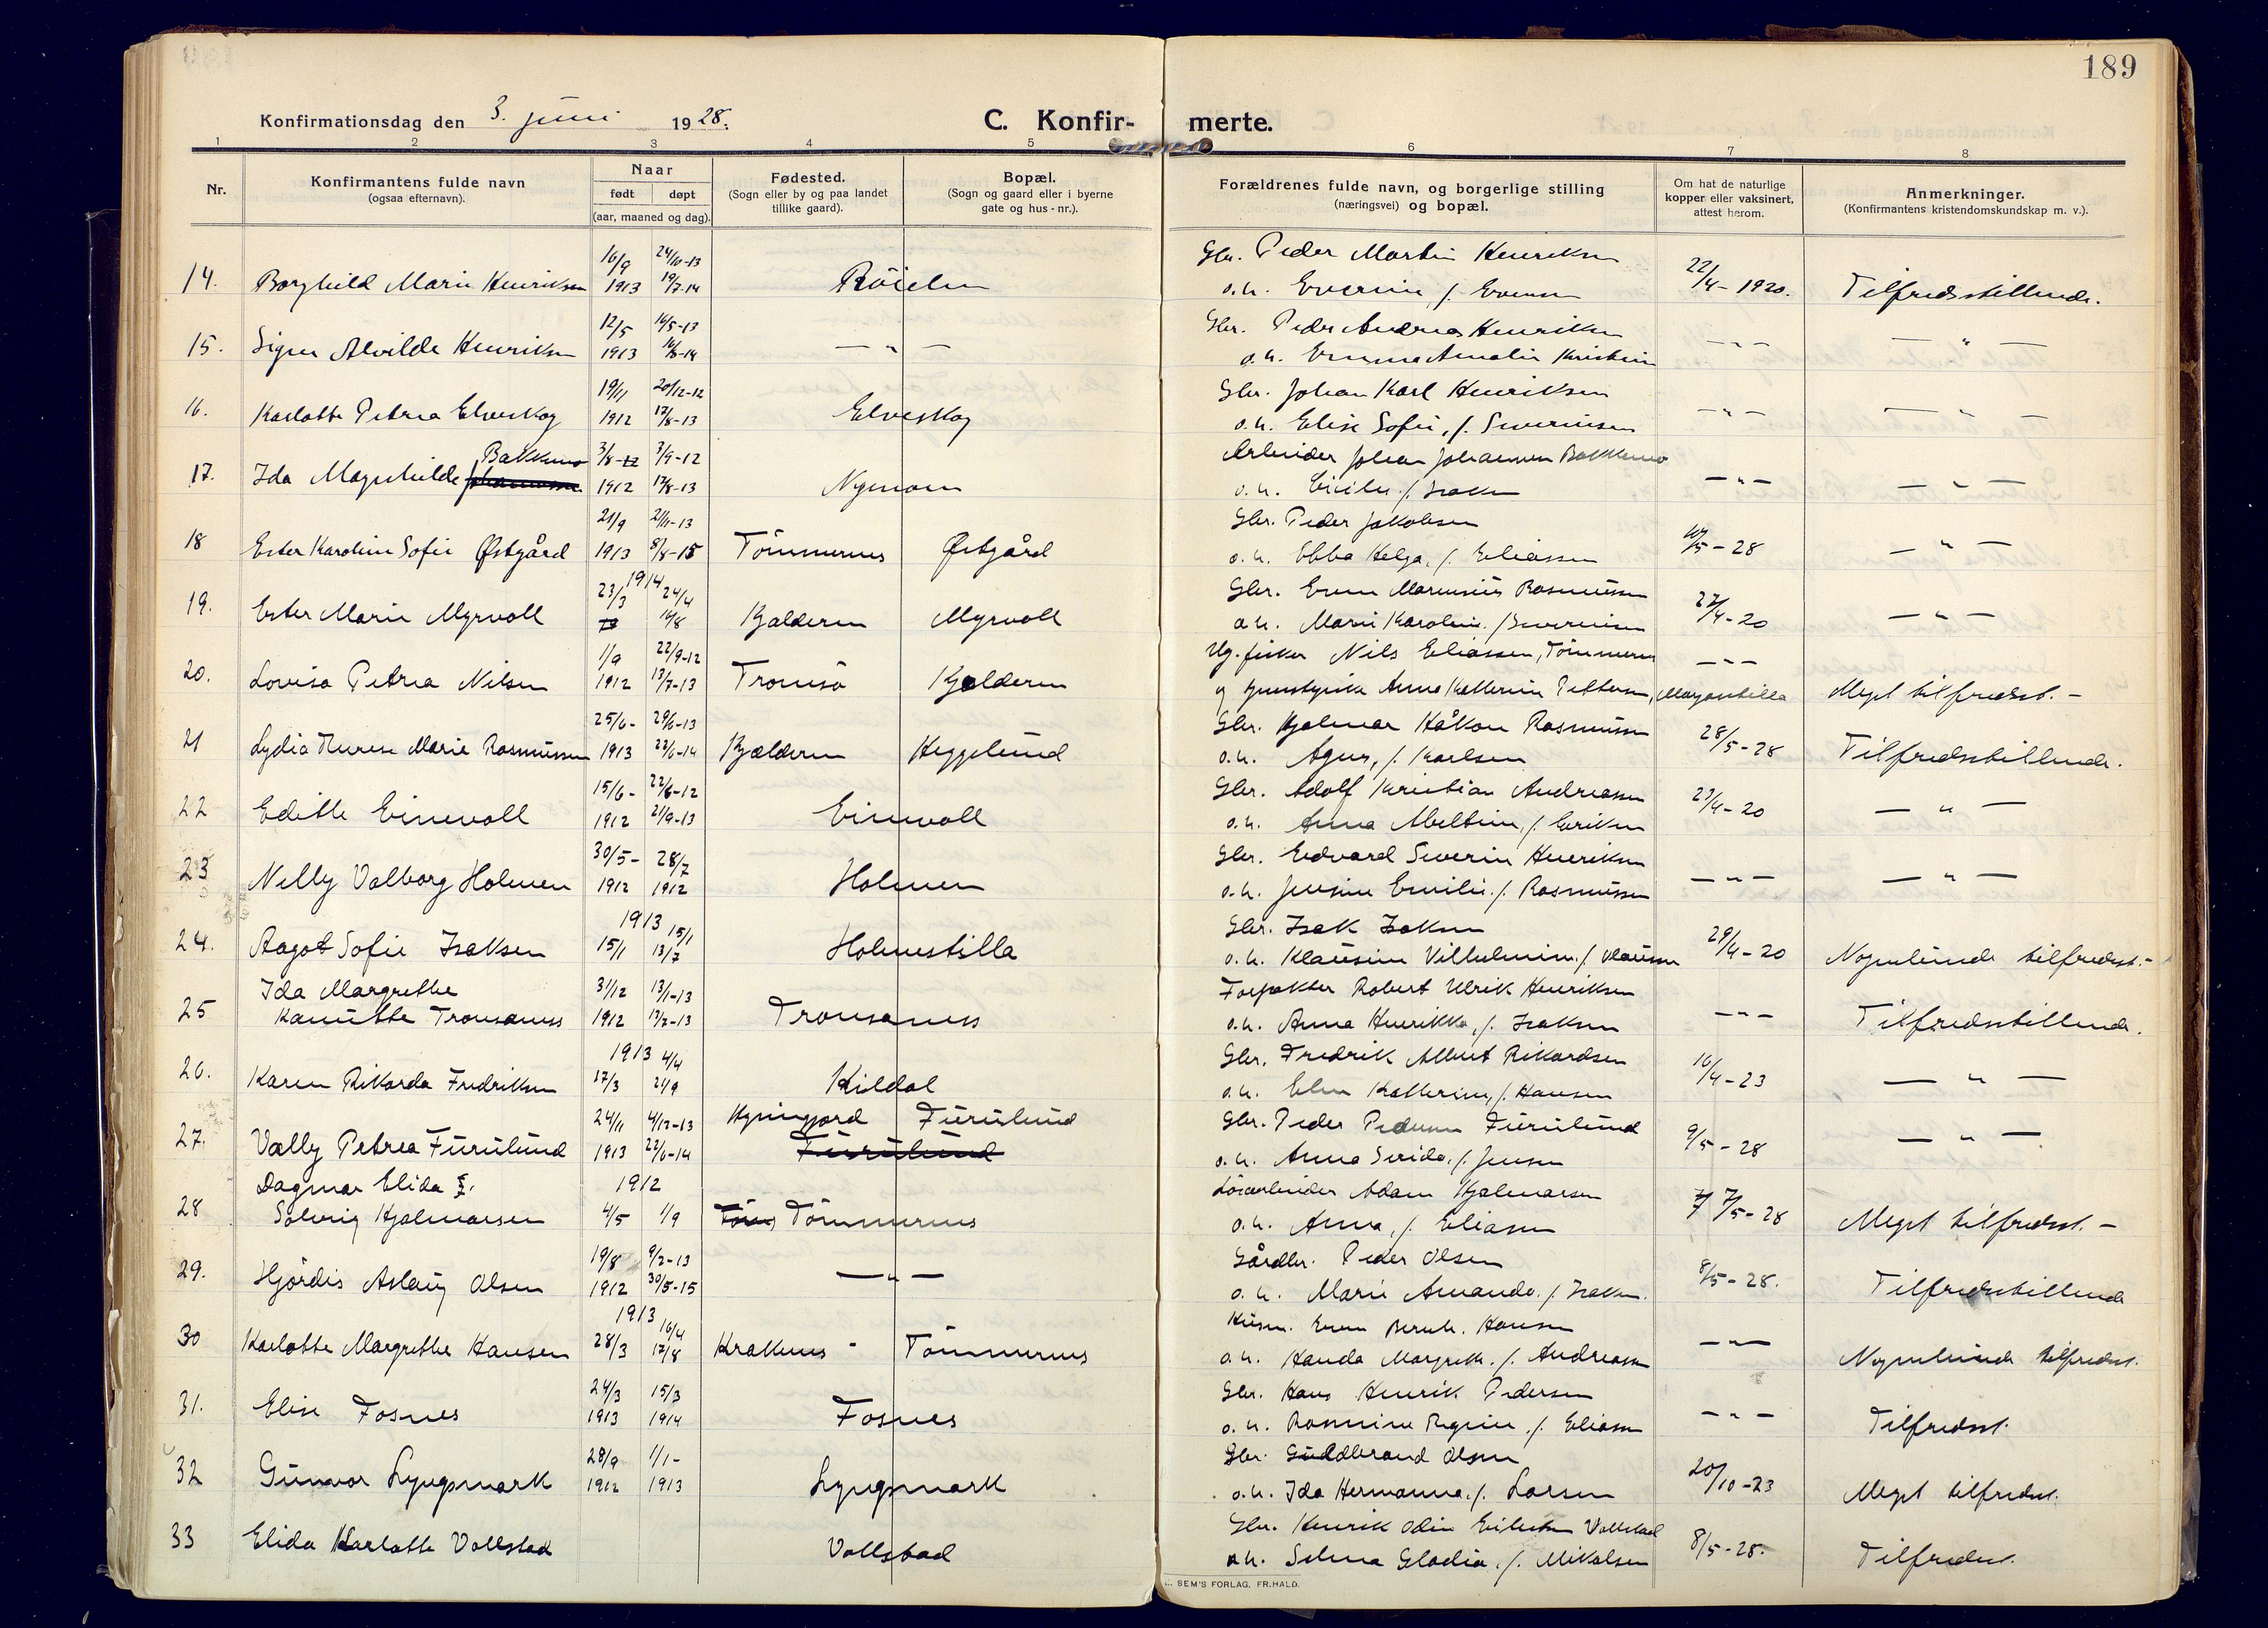 189
Konfirmationsdag den 3. juni 1928.
C. Konfir- merte.
1 2 3 4 5 6 7 8
Nr.
Konfirmantens fulde navn
(ogsaa efternavn).
Naar
født døpt
(aar, maaned og dag).
Fødested.
(Sogn eller by og paa landet
tillike gaard).
Bopæl.
(Sogn og gaard eller i byerne
gate og hus-nr.).
Forældrenes fulde navn, og borgerlige stilling
(næringsvei) og bopæl.
Om hat de naturlige
kopper eller vaksinert,
attest herom.
Anmerkninger.
(Konfirmantens kristendomskundskap m. v.).
16/9 24/10-13 Gbr. Peder Martin Henriksen
14. Borghild Marie Henriksen 1913 19/7-14 Röielen o.h. Evenine f. Evensen 22/4-1920. Tilfredsstillende.
12/5 16/5-13 Gbr. Peder Andreas Henriksen
15. Signe Alvilde Henriksen 1913 — " — o.h. Emma Amalie Kristine — " — — " —
19/11 20/12-12 Gbr. Johan Karl Henriksen
16. Karlotte Petrea Elveskog 1912 17/8-13 Elveskog o.h. Elise Sofie, f. Severinsen — " — — " —
Bakkemo 3/8-12 7/9-12 Arbeider Johan Johannesen Bakkemo
17. Ida Magnhilde Johannessen 1912 17/8-13 Nymoen o.h. f. Isaksen — " — — " —
21/9 21/11-13 Gbr. Peder Jakobsen
18 Ester Karoline Sofie Østgård 1913 8/8-15 Tömmernes Østgård o.h. Ebba Helga, f. Eliassen 10/5-28 — " —
1914
23/3 24/4 Gbr. Even Marensius Rasmussen
19. Ester Marie Myrvoll 13 16/8 Kjelderen Myrvoll o.h. Marie Karoline f. Severinsen 27/4-20 — " —
1/9 22/9-12 Ug. fisker Nils Eliassen, Tömmernes — " —
20. Lovisa Petrea Nilsen 1912 13/7-13 Tromsö Kjelderen og Anna Kathrine Pettersen, Meget tilfredsst. -
25/6- 29/6-13 Gbr. Hjalmar Håkon Rasmussen
21 Lydia Therese Marie Rasmussen 1913 22/6-14 Kjælderen Heggelund o.h. Agnes, f. Karlsen 28/5-28 Tilfredsstillende.
15/6- 22/6-12 Gbr. Adolf Kristian Andreassen
22 Edithe Einevoll 1912 21/9-13 Einevoll o.h. Anna Abeltine, f. Eriksen 23/4-20 — " —
30/5- 28/7 Gbr. Edvard Severin Henriksen
23 Nelly Valborg Holmen 1912 1912 Holmen o.h. Jensine Emilie f. Rasmussen — " — — " —
1913
15/1 Gbr. Isak Isaksen
24. Aagot Sofie Isaksen 15/1 13/7 Holmestilla o.h. Klausine Vilhelmine f. Klausen 29/4-20 Nogenlunde tilfredsst.-
Ida Margrethe 31/12 13/1-13 Forpakter Robert Ulrik Henriksen
25 Kanutte Tronsanes 1912 13/7-13 Tronsanes o.h. Anna Henrikka, f. Isaksen — " — Tilfredsstillende.
1913 4/4 Gbr. Fredrik Albert Rikardsen
26. Karen Rikarda Fredriksen 17/3 21/9 Kildal o.h. Elen Kathrine, f. Hansen 16/4-23 — " —
24/11 4/12-13 Furulund Gbr. Peder Pedersen Furulund
27. Vally Petrea Furulund 1913 22/6-14 Furulund o.h. Anna Serida, f. Jensen 9/5-28 — " —
Dagmar Elida 1912 Lösarbeider Adam Hjalmarsen
28 Solveig Hjalmarsen 4/5 1/9 Tömmernes o.h. Anna, f. Eliasen 7/5-28 Meget tilfredsst. -
19/8 9/2-13 Gårdbr. Peder Olsen
29. Hjördis Aslaug Olsen 1912 30/5-15 — " — o.h. Marie Amanda f. Isaksen. 8/5-28. Tilfredsstillende
1913 16/4 Husm. Even Bernh. Hansen
30 Karlotte Margrethe Hansen 28/3 17/8 Kraknes - Tömmernes o.h. Handa Margreth. f. Andreassen — " — Nogenlunde tilfredsst.
24/3 15/3 Gbr. Hans Henrik Pedersen
31. Elise Fosnes 1913 1914 Fosnes o.h. Rasmine Regine, f. Eliasen — " — Tilfredsst.
28/9 1/1- Gbr. Guddbrand Olsen
32 Gunvor Lyngsmark 1912 1913 Lyngsmark o.h. Ida Hermanna, f. Larsen 20/10-23 Meget tilfredsst.
Gbr. Henrik Odin Vollstad
33 Elida Karlotte Vollstad Vollstad o.h. Selma Gladia, f. Mikalsen 8/5-28. Tilfredsst.
SEM'S FORLAG, FR. HALD.